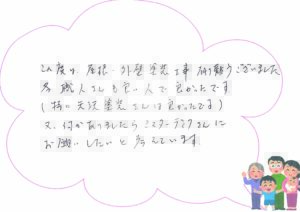 この度は、屋根・外壁塗装工事 有り難うございました
各職人さんも良い人で良かったです
(特に 塗装さんは良かったです)
又、何かありましたら ミスターデイクさんに
お願いしたいと考えています